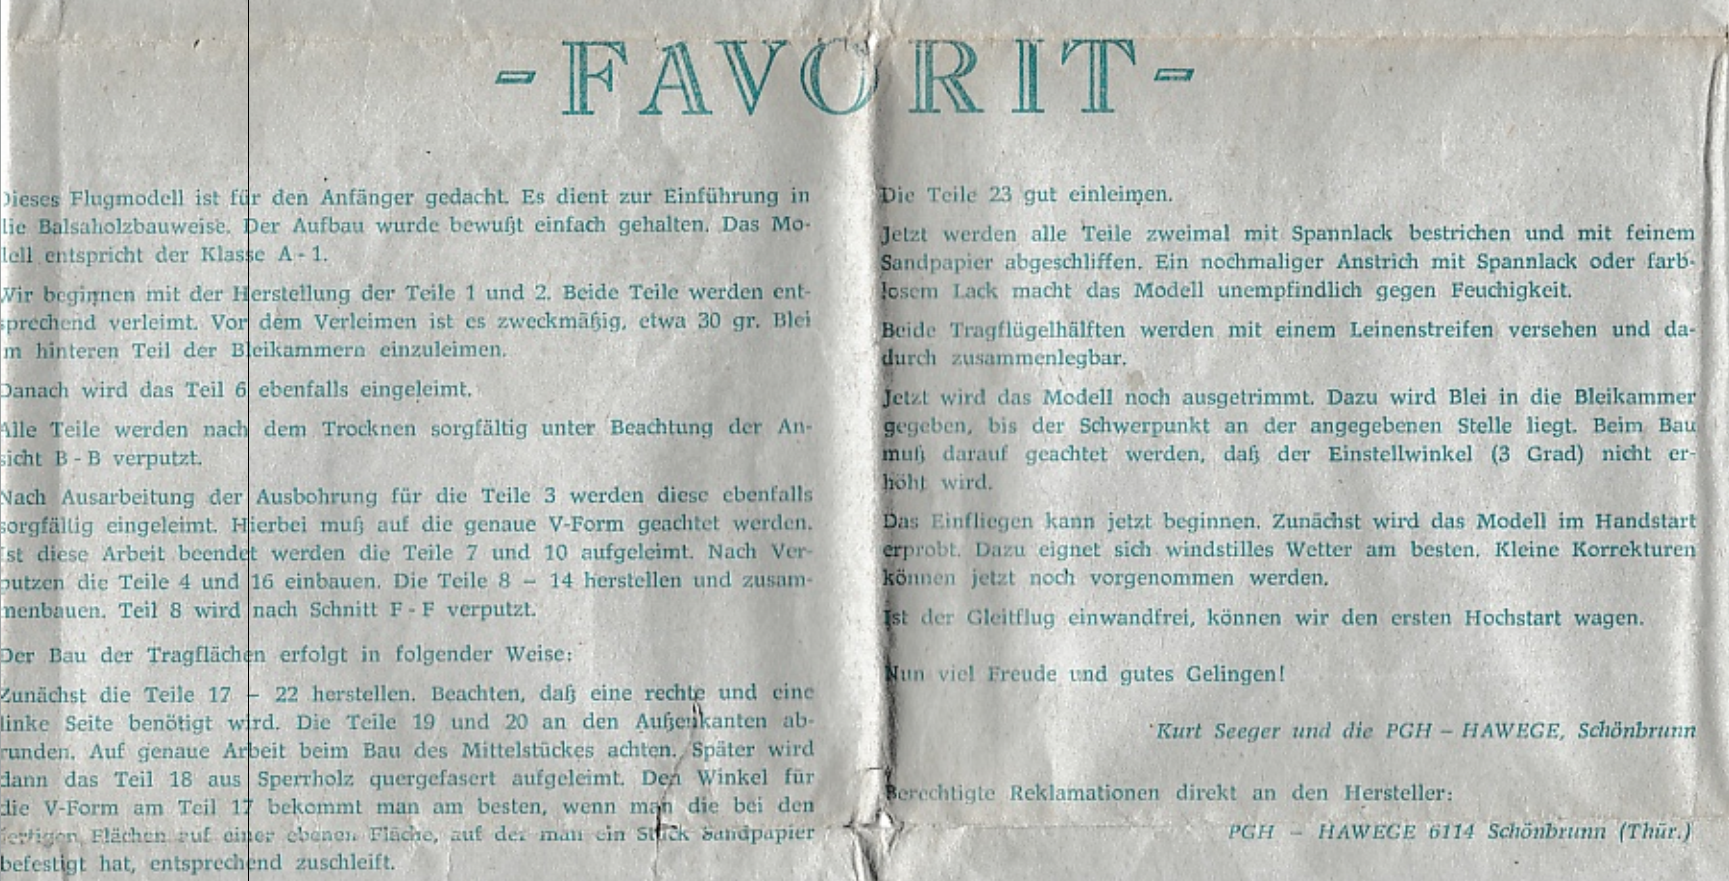 - FAVORIT -
Dieses Flugmodell ist für den Anfänger gedacht. Es dient zur Einführung in
die Balsaholzbauweise. Der Aufbau wurde bewußt einfach gehalten. Das Mo-
dell entspricht der Klasse A - 1.
Wir beginnen mit der Herstellung der Teile 1 und 2. Beide Teile werden ent-
sprechend verleimt. Vor dem Verleimen ist es zweckmäßig, etwa 30 gr. Blei
im hinteren Teil der Bleikammern einzuleimen.
Danach wird das Teil 6 ebenfalls eingeleimt.
Alle Teile werden nach dem Trocknen sorgfältig unter Beachtung der An-
sicht B - B verputzt.
Nach Ausarbeitung der Ausbohrung für die Teile 3 werden diese ebenfalls
sorgfällig eingeleimt. Hierbei muß auf die genaue V-Form geachtet werden.
Ist diese Arbeit beendet werden die Teile 7 und 10 aufgeleimt. Nach Ver-
putzen die Teile 4 und 16 einbauen. Die Teile 8 – 14 herstellen und zusam-
menbauen. Teil 8 wird nach Schnitt F - F verputzt.
Der Bau der Tragflächen erfolgt in folgender Weise:
Zunächst die Teile 17 – 22 herstellen. Beachten, daß eine rechte und eine
linke Seite benötigt wird. Die Teile 19 und 20 an den Außenkanten ab-
runden. Auf genaue Arbeit beim Bau des Mittelstückes achten. Später wird
dann das Teil 18 aus Sperrholz quergefasert aufgeleimt. Den Winkel für
die V-Form am Teil 17 bekommt man am besten, wenn man die bei den
fertigen Flächen auf einer ebenen Fläche, auf der man ein Stück Sandpapier
befestigt hat, entsprechend zuschleift.
Die Teile 23 gut einleimen.
Jetzt werden alle Teile zweimal mit Spannlack bestrichen und mit feinem
Sandpapier abgeschliffen. Ein nochmaliger Anstrich mit Spannlack oder farb-
losem Lack macht das Modell unempfindlich gegen Feuchigkeit.
Beide Tragflügelhälften werden mit einem Leinenstreifen versehen und da-
durch zusammenlegbar.
Jetzt wird das Modell noch ausgetrimmt. Dazu wird Blei in die Bleikammer
gegeben, bis der Schwerpunkt an der angegebenen Stelle liegt. Beim Bau
muß darauf geachtet werden, daß der Einstellwinkel (3 Grad) nicht er-
höht wird.
Das Einfliegen kann jetzt beginnen. Zunächst wird das Modell im Handstart
erprobt. Dazu eignet sich windstilles Wetter am besten. Kleine Korrekturen
können jetzt noch vorgenommen werden.
Ist der Gleitflug einwandfrei, können wir den ersten Hochstart wagen.
Nun viel Freude und gutes Gelingen!
Kurt Seeger und die PGH – HAWEGE, Schönbrunn
Berechtigte Reklamationen direkt an den Hersteller:
PGH – HAWEGE 6114 Schönbrunn (Thür.)